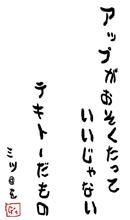 アップがおそくたって
いいじゃない
テキトーだもの
ミツヨシ